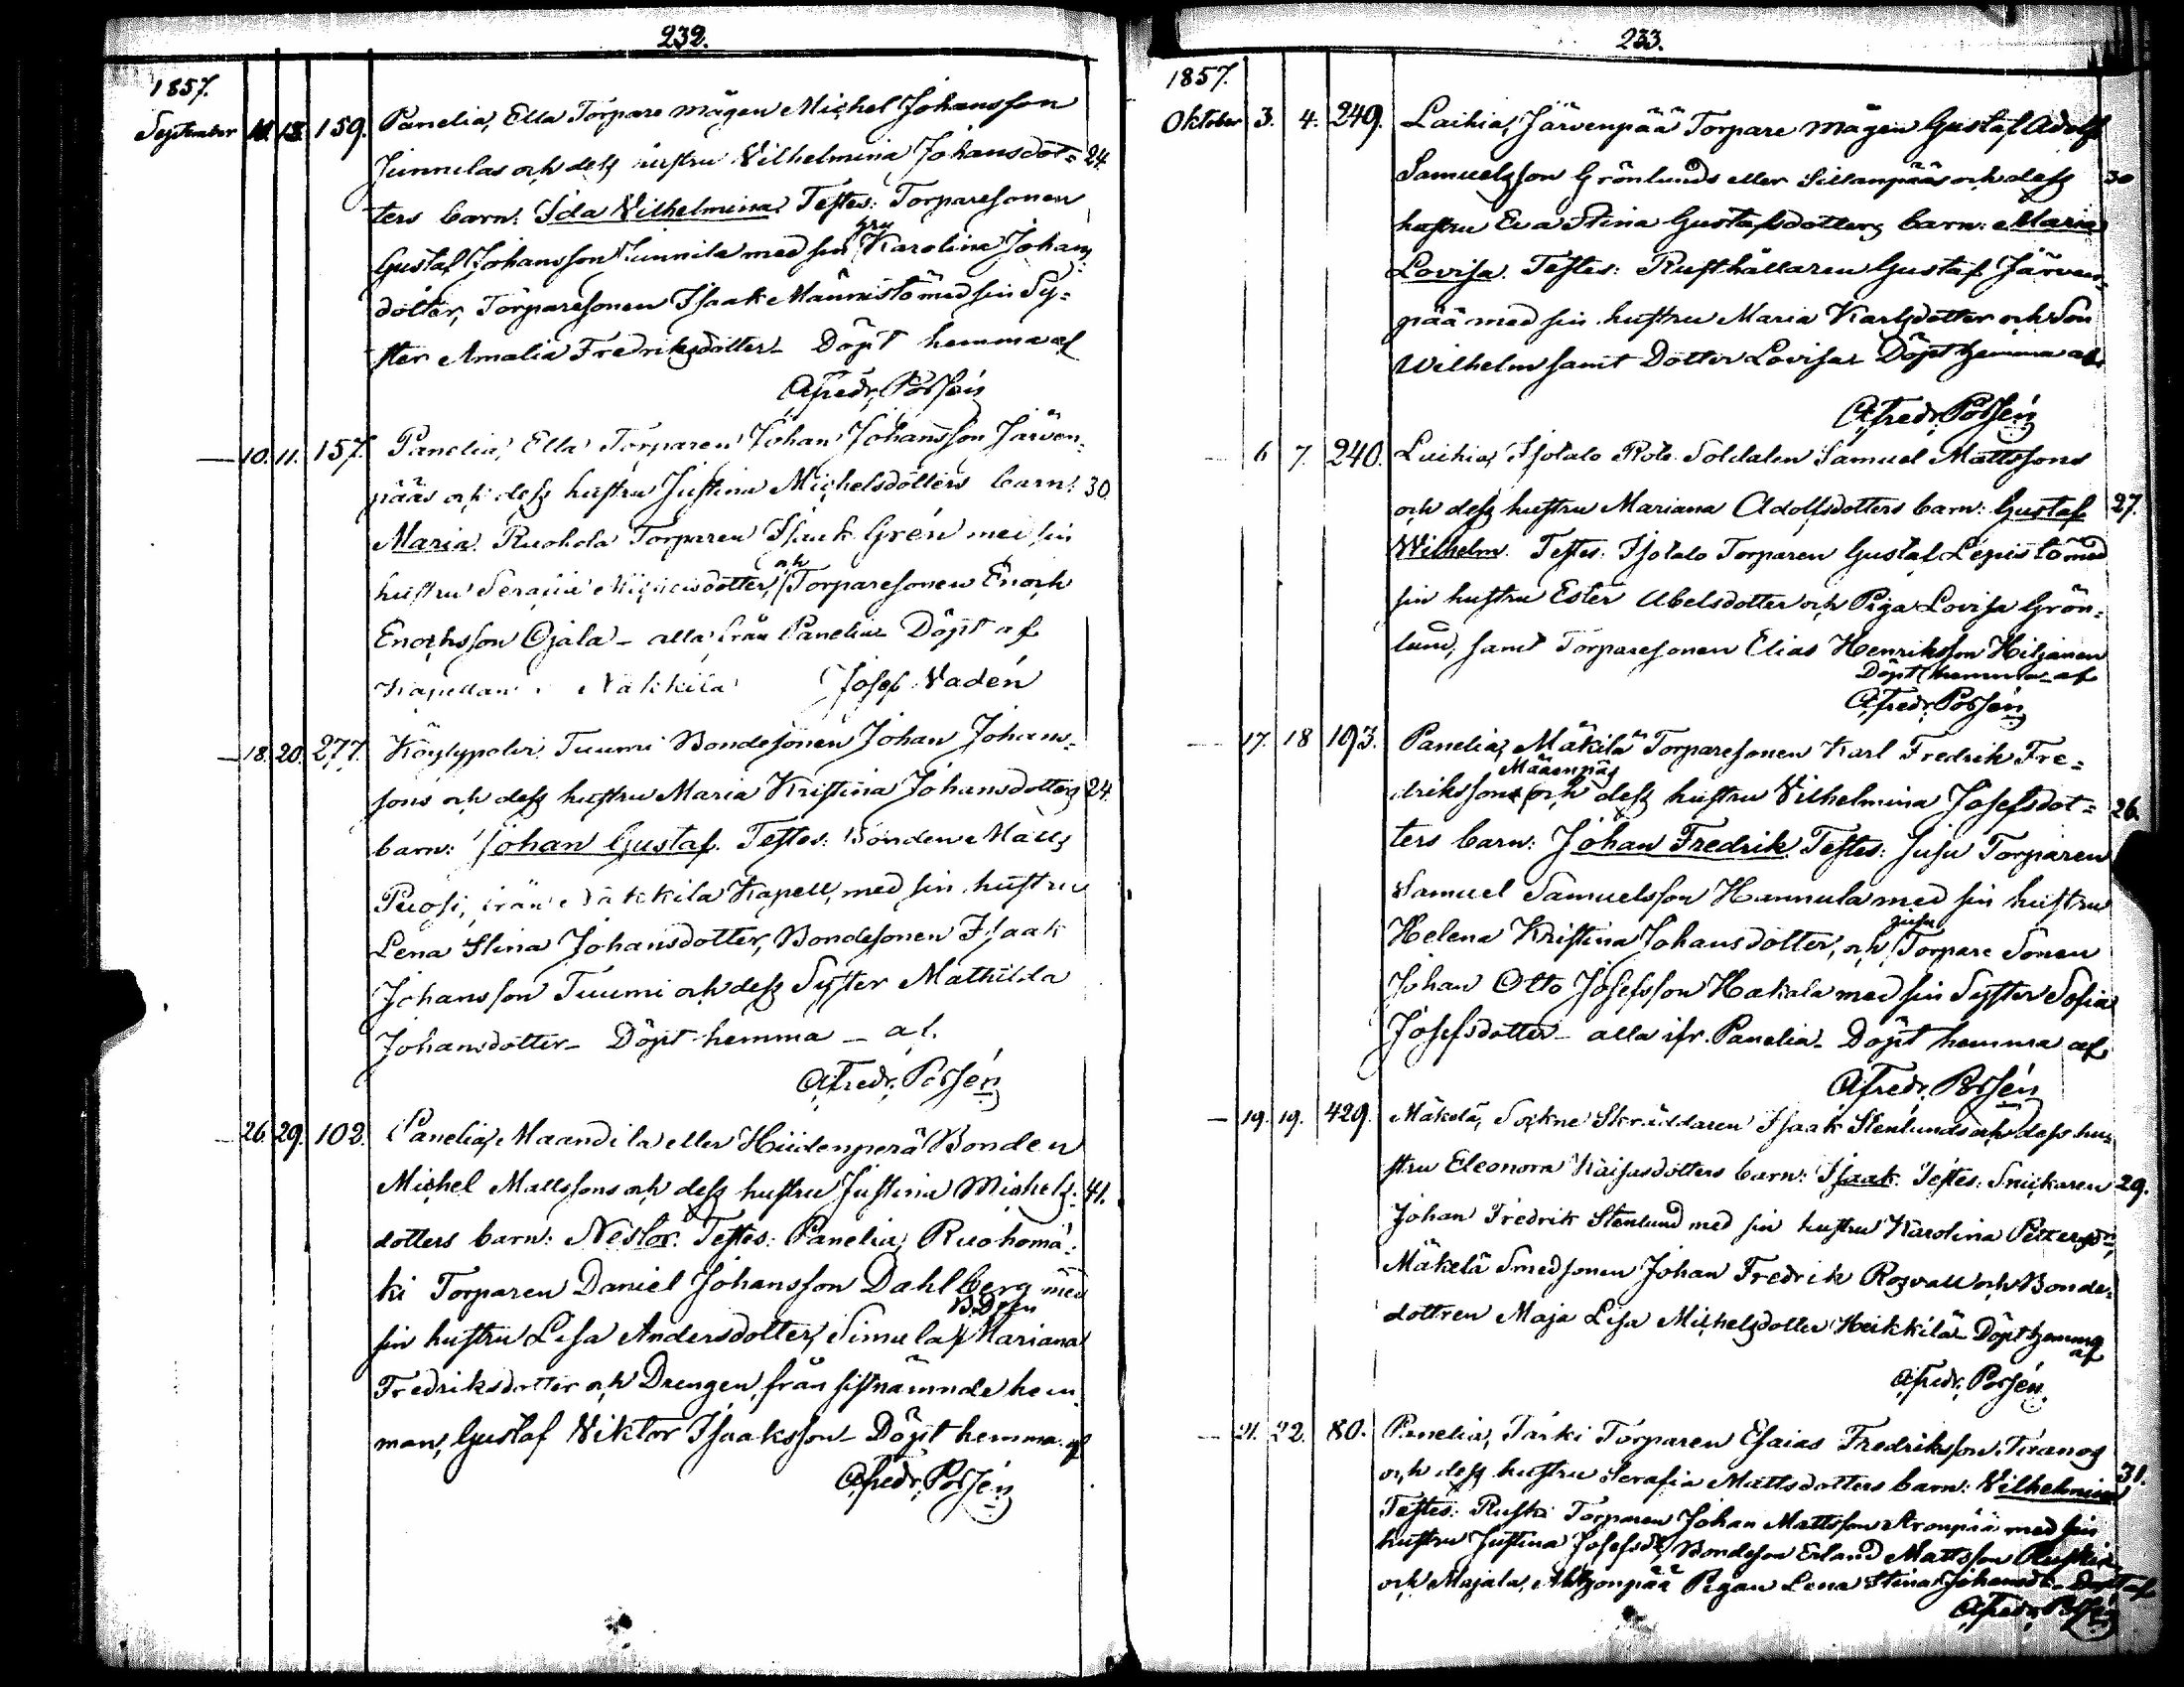 232.
1857.
September 11. 13. 159. Panelia, Ella Torpare mågen Michel Johansson
Junnilas och dess hustru Vilhelmina Johansdot= 24.
ters barn: Ida Vilhelmina. Testes: Torparesonen
Gustaf Johansson Junnila med sin hru Karolina Johans
dotter, Torparesonen Isaak Männistö med sin Sy=
ster Amalia Fredriksdotter_ Döpt hemma af
A Fredr. Possén
— 10. 11. 157. Panelia, Ella Torparen Johan Johansson Järven=
pääs och dess hustru Justina Michelsdotters barn: 30.
Maria. Ruohola Torparen Isaak Grén med sin
hustru Serafia Michelsdotter, och Torparesonen Enoch
Enochsson Ojala _ alla från Panelia_ Döpt af
Kapellan i Nakkila Josef Vadén
— 18. 20. 277. Köylypolvi Tuumi Bondesonen Johan Johans=
sons och dess hustru Maria Kristina Johansdotters 24.
barn: Johan Gustaf. Testes: Bonden Matts
Puosi, från Nakkila Kapell, med sin hustru
Lena Stina Johansdotter, Bondesonen Isaak
Johansson Tuumi och dess Syster Mathilda
Johansdotter_ Döpt hemma _ af.
A Fredr. Possén
— 26. 29. 102. Panelia, Maandila eller Hiidenperä Bonden
Michel Mattssons och dess hustru Justina Michels= 41.
dotters barn: Nestor. Testes: Panelia, Ruohomä=
ki Torparen Daniel Johansson Dahlberg med
sin hustru Lisa Andersdotter, Simula Mariana
Fredriksdotter och Drengen, från sistnämnde hem=
man, Gustaf Viktor Isaaksson_ Döpt hemma af
A Fredr. Possén
233.
1857.
Oktober 3. 4. 249. Laihia, Järvenpää Torpare mågen Gustaf Adolf
Samuelsson Grönlunds eller Sillanpääs och dess 30
hustru Eva Stina Gustafsdotters barn: Maria
Lovisa. Testes: Rusthållaren Gustaf Järven=
pää med sin hustru Maria Karlsdotter och Son
Wilhelm samt Dotter Lovisa_ Döpt hemma af
A Fredr. Possén
— 6 7. 240. Laihia, Isotalo Rote Soldaten Samuel Mattssons
och dess hustru Mariana Adolfsdotters barn: Gustaf 27.
Wilhelm. Testes: Isotalo Torparen Gustaf Lepistö med
sin hustru Ester Abelsdotter och Piga Lovisa Grön=
lund, samt Torparesonen Elias Henriksson Hiljanen
Döpt hemma af
A Fredr. Possén
— 17. 18 193. Panelia, Mäkilä Torparesonen Karl Fredrik Fre=
drikssons Määenpäs och dess hustru Vilhelmina Josefsdot= 26.
ters barn: Johan Fredrik. Testes: Jusu Torparen
Samuel Samuelsson Hannula med sin hustru
Helena Kristina Johansdotter, och Jusu Torpare Sonen
Johan Otto Josefsson Hakala med sin Syster Sofia
Josefsdotter_ alla ifr. Panelia_ Döpt hemma af
A Fredr. Possén
— 19. 19. 429. Mäkelä, Sockne Skräddaren Isaak Stenlunds och dess hu=
stru Eleonora Kaisasdotters barn: Isaak. Testes: Snickaren 29.
Johan Fredrik Stenlund med sin hustru Karolina
Mäkelä Smedsonen Johan Fredrik Rosvall och Bonde=
dottren Maja Lisa Michelsdotter Heikkilä_ Döpt hemma
af
A Fredr. Possén.
— 21. 22. 80. Panelia, Tarki Torparen Esaias Fredriksson
och dess hustru Serafia Mattsdotters barn: Vilhelmina 31.
Testes: Torparen Johan Mattsson med sin
hustru Justina Josefsdr, Bondeson Erland Mattsson
och Majala, Pigan Lena Stina Johansdr_ Döpt af
A Fredr. Possén